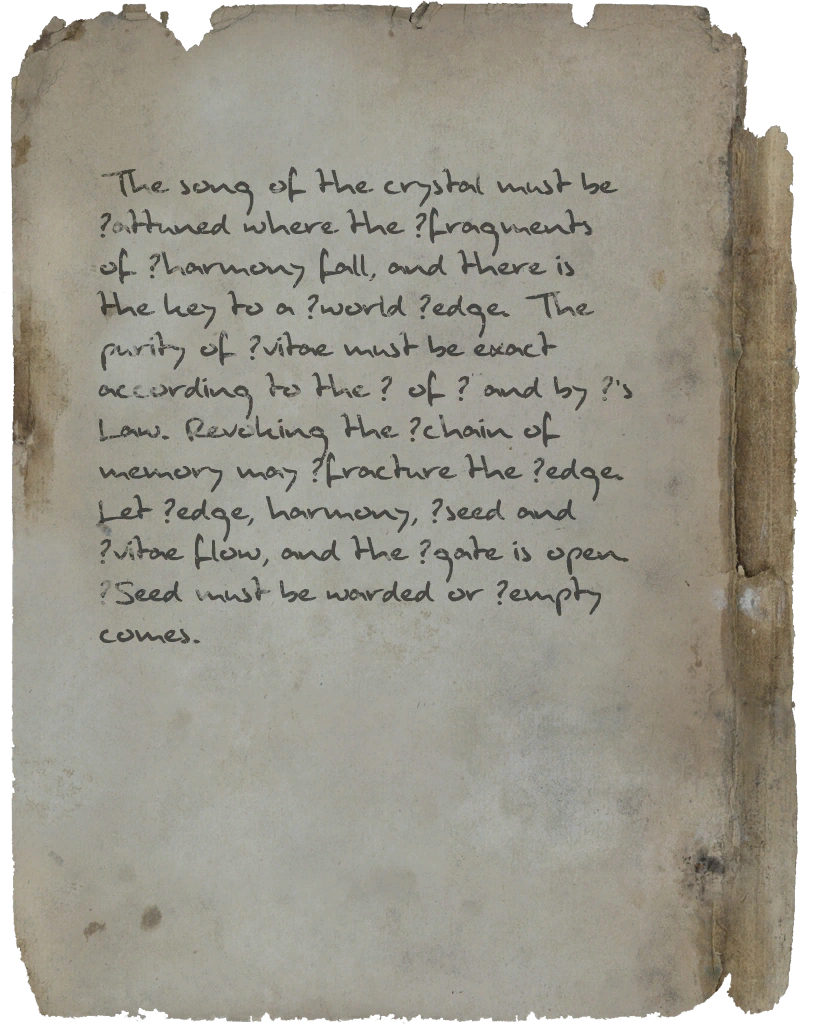 The song of the crystal must be
?attuned where the ?fragments
of ?harmony fall, and there is
the key to a ?world ?edge. The
purity of ?vitae must be exact
according to the ? of ? and by ?'s
Law. Revoking the ?chain of
memory may ?fracture the ?edge.
Let ?edge, harmony, ?seed and
?vitae flow, and the ?gate is open.
?Seed must be warded or ?empty
comes.